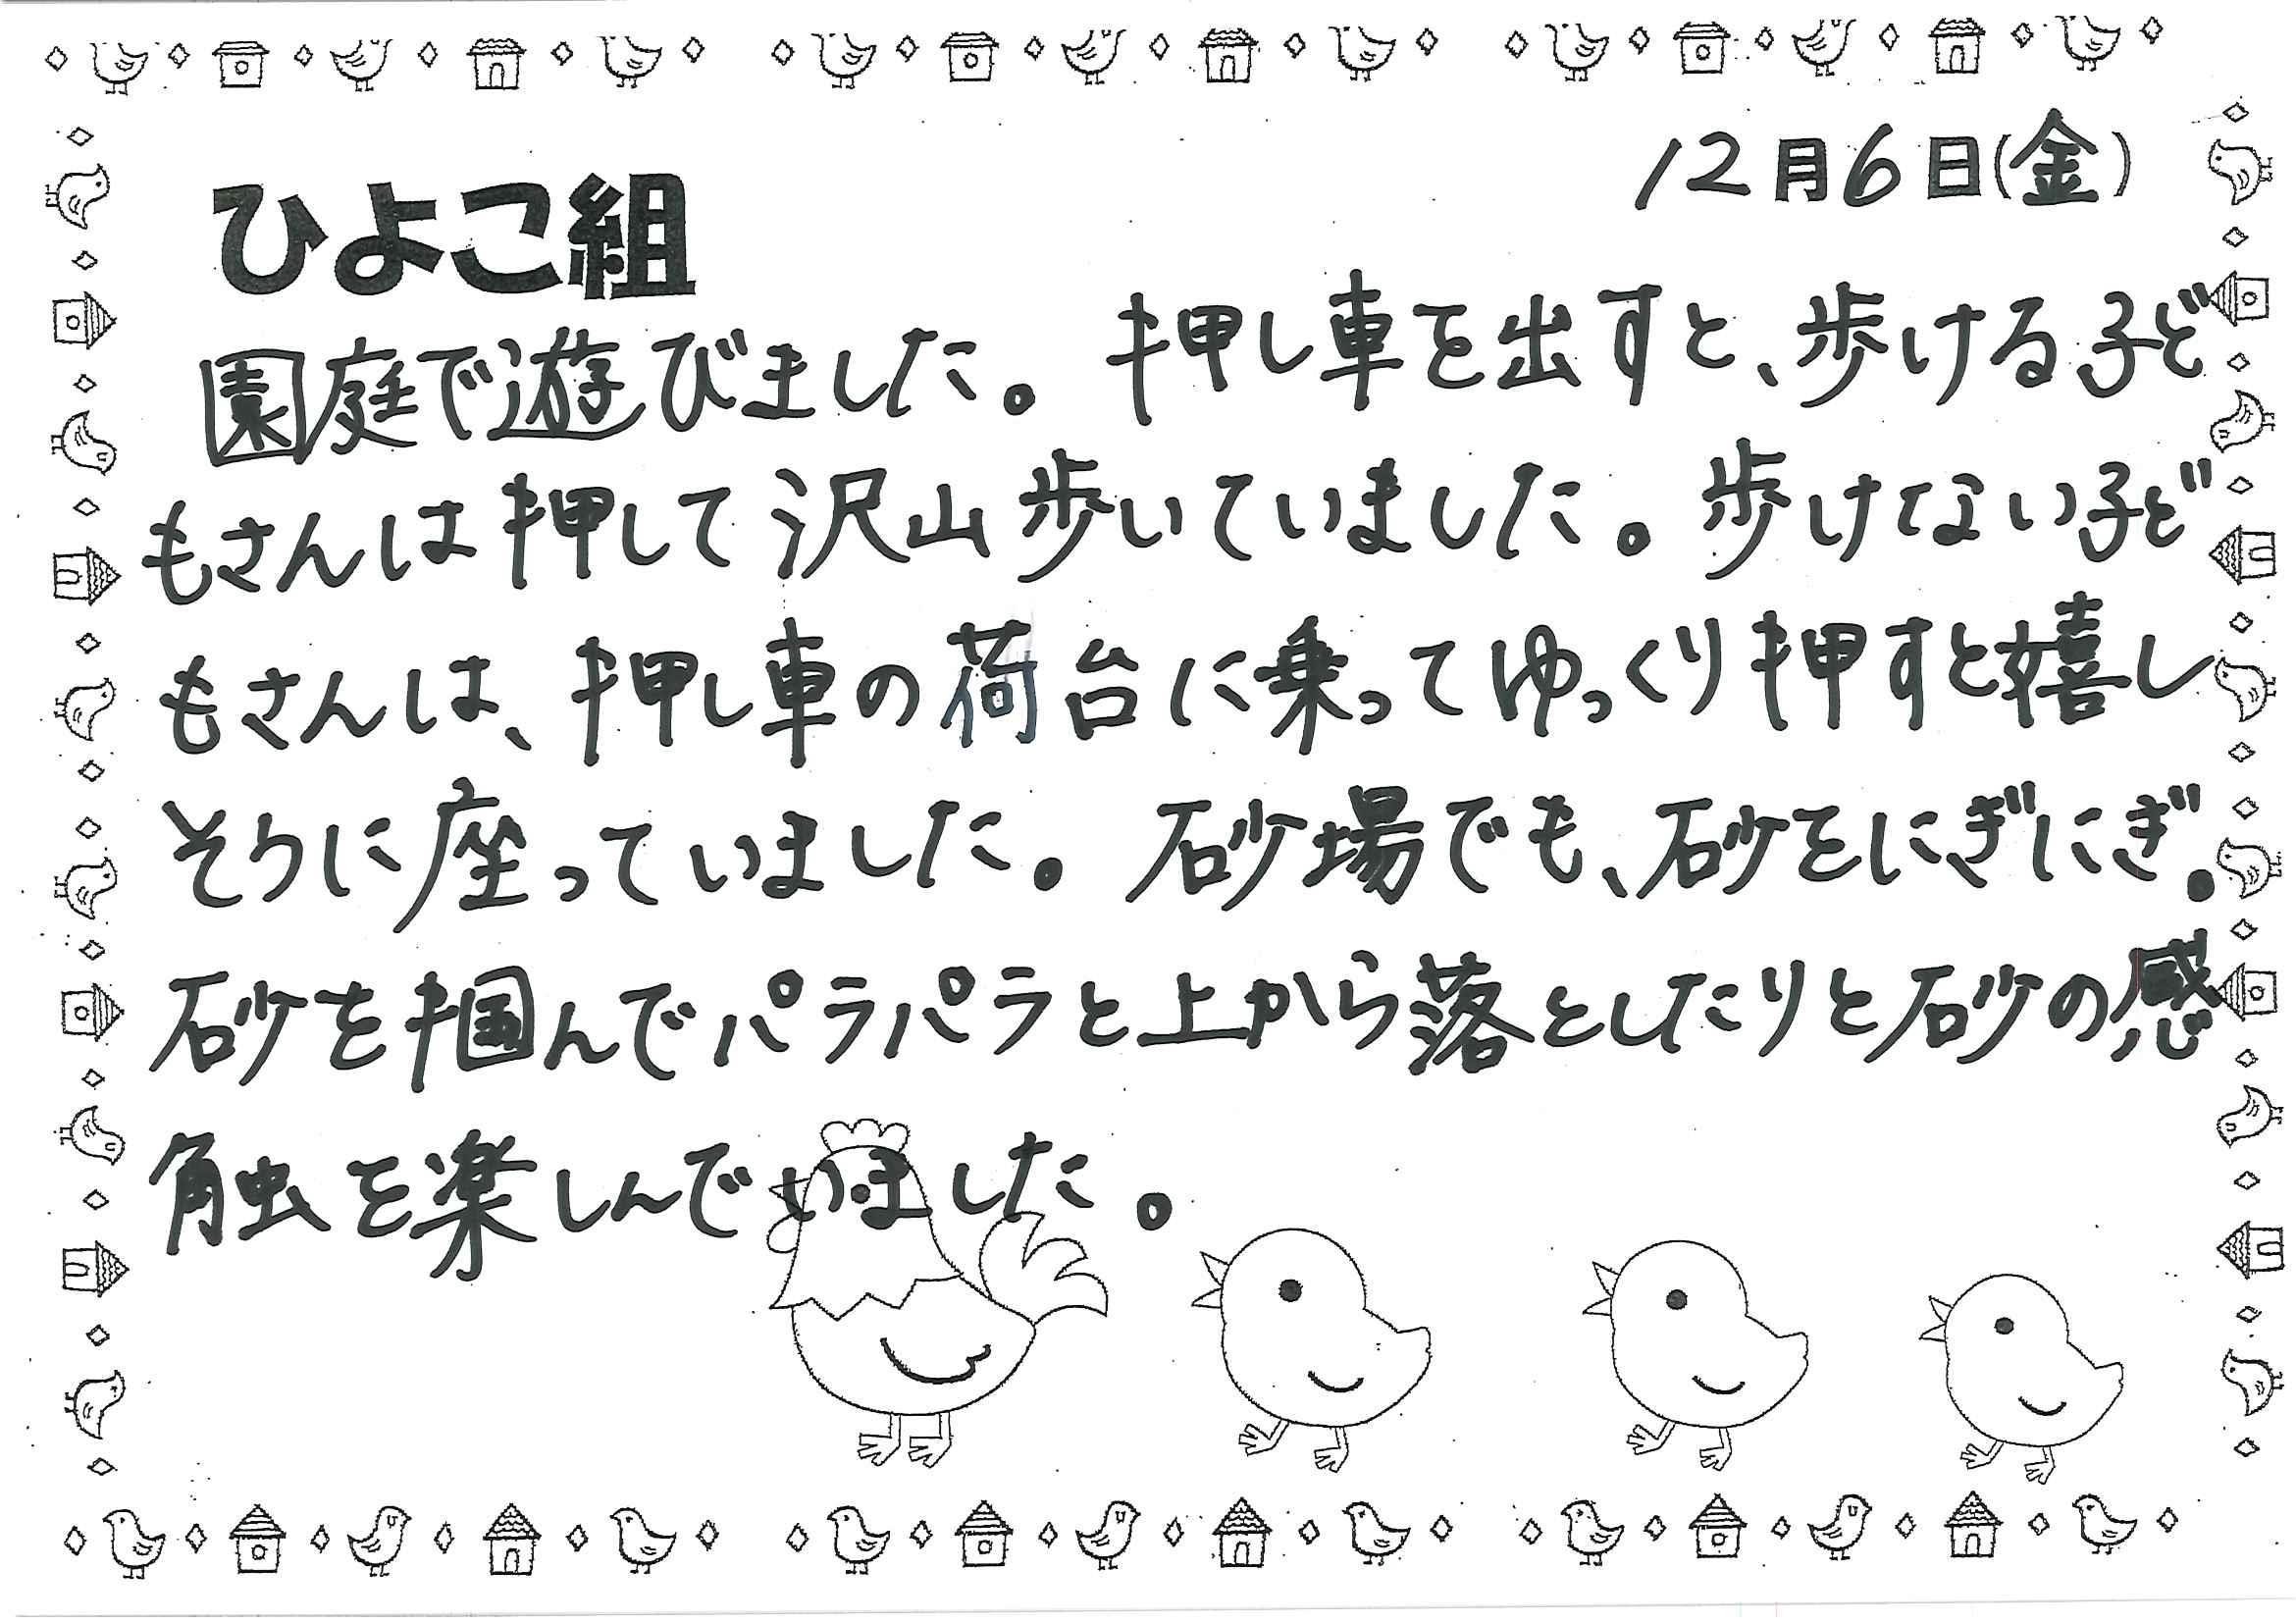 12月6日(金)
ひよこ組
園庭で遊びました。押し車を出すと、歩ける子ど
もさんは押して沢山歩いていました。歩けない子ど
もさんは、押し車の荷台に乗ってゆっくり押すと嬉し
そうに座っていました。砂場でも、砂をにぎにぎ。
砂を掴んでパラパラと上から落としたりと砂の感
触を楽しんでいました。